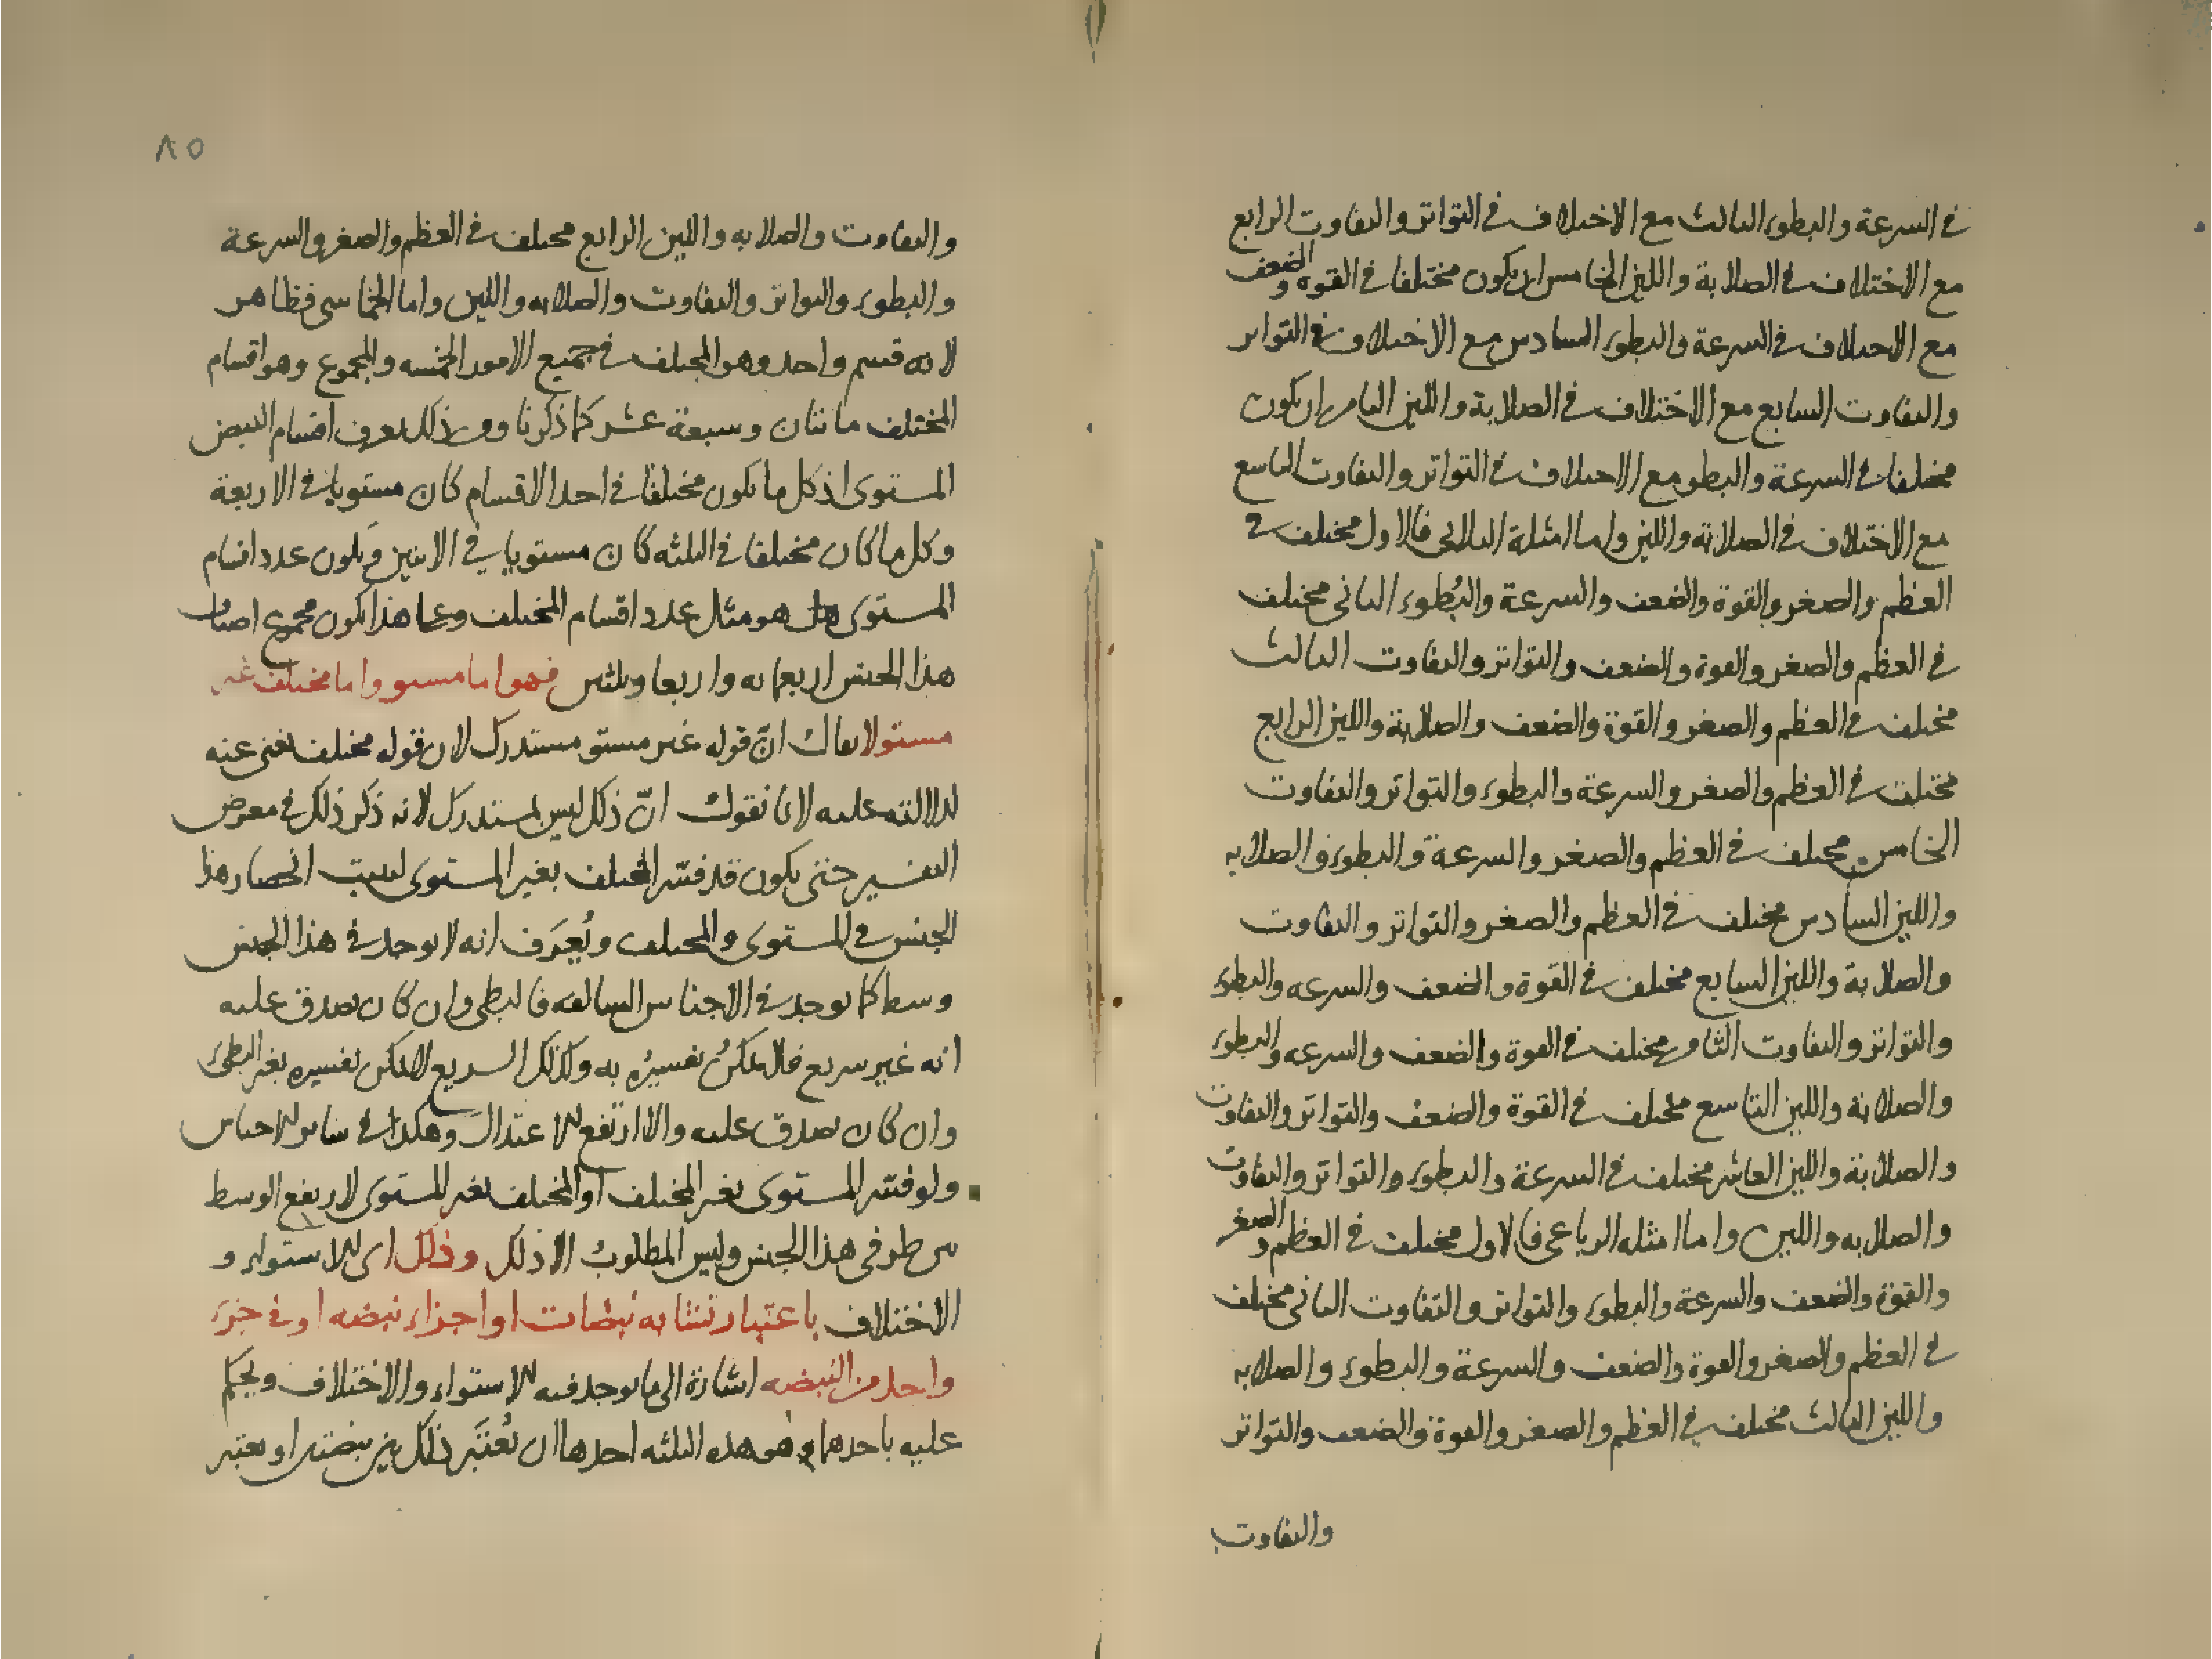 في السرعة والبطوء الثالث مع الاختلاف في التواتر والتفاوت الرابع
مع الاختلاف في الصلابة واللين الخامس ان يكون مختلفا في القوه والضعف
مع الاختلاف في السرعة والبطوء السادس مع الاختلاف في التواتر
والتفاوت السابع مع الاختلاف في الصلابة واللين الثامن ان يكون
مختلفا في السرعة والبطو مع الاختلاف في التواتر والتفاوت التاسع
مع الاختلاف في الصلابة واللين واما امثلة الثلاثي فالاول مختلف في
العظم والصغر والقوة والضعف والسرعة والبُطوء الثاني مختلف
في العظم والصغر والقوة والضعف والتواتر والتفاوت الثالث
مختلف في العظم والصغر والقوة والضعف والصلابة واللين الرابع
مختلف في العظم والصغر والسرعة والبطوء والتواتر والتفاوت
الخامس مختلف في العظم والصغر والسرعة والبطوء والصلابه
واللين السادس مختلف في العظم والصغر والتواتر والتفاوت
والصلابة واللين السابع مختلف في القوة والضعف والسرعه والبطوء
والتواتر والتفاوت الثامن مختلف في القوة والضعف والسرعه والبطوء
والصلابة واللين التاسع مختلف في القوة والضعف والتواتر والتفاوت
والصلابة واللين العاشر مختلف في السرعة والبطوء والتواتر والتفاوت
والصلابه واللين واما امثله الرباعي فالاول مختلف في العظم والصغر
والقوة والضعف والسرعة والبطوء والتواتر والتفاوت الثاني مختلف
في العظم والصغر والقوة والضعف والسرعة والبطوء والصلابه
واللين الثالث مختلف في العظم والصغر والقوة والضعف والتواتر
والتفاوت
٨٥
والتفاوت والصلابه واللين الرابع مختلف في العظم والصغر والسرعة
والبطوء والتواتر والتفاوت والصلابه واللين واما الخماسي فظاهر
لانه قسم واحد وهو المختلف في جميع الامور الخمسه والمجموع وهو اقسام
المختلف مائتان وسبعة عشر كما ذكرنا ومن ذلك تعرف اقسام النبض
المستوى اذ كل ما يكون مختلفا في احد الاقسام كان مستويا في الاربعة
وكل ما كان مختلفا في الثلثه كان مستويا في الاثنين ويكون عدد اقسام
المستوى هو مثل عدد اقسام المختلف وعلى هذا يكون مجموع اصناف
هذا الجنس اربعمائه واربعا وثلثين فهو اما مستو واما مختلف غير
مستو لا يقال انّ قوله غير مستو مستدرك لان قوله مختلف يغنى عنه
لدلالته عليه لانا نقول انّ ذلك ليس بمستدرك لانه ذكر ذلك في معرض
التفسير حتى يكون قد فسّر المختلف بغير المستوى لسبب انحصار هذا
الجنس في المستوى والمختلف ويُعرَف انه لا يوجد في هذا الجنس
وسط كما يوجد في الاجناس السالفه فالبطي وان كان يصدق عليه
انه غير سريع فلا يمكنُ تفسيرُه به وكذلك السريع لا يمكن تفسيره بغير البطئ
وان كان يصدق عليه والا ارتفع الاعتدال وهكذا في سائر الاجناس
ولو فسّر المستوى بغير المختلف او المختلف بغير المستوى لارتفع الوسط
في هذا الجنس وليس المطلوبُ الا ذلك وذلك اى الاستواء و
الاختلاف باعتبار تشابه نبضات او اجزاء نبضه او في جزء
واحد من النبضه اشارة الى ما يوجد فيه الاستواء والاختلاف ويحكم
عليه باحدهما وهو هذه الثلثه احدها ان يُعتَبَر ذلك بين نبضتين او يعتبر